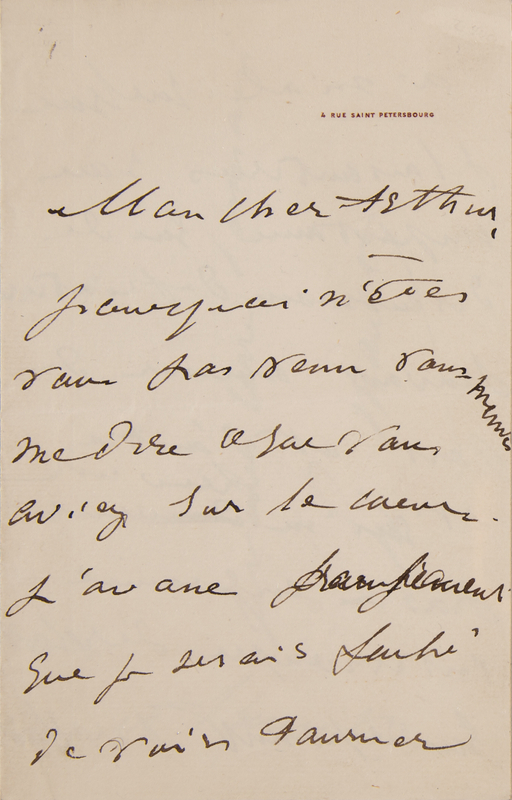 4 RUE SAINT PETERSBOURG
Mon cher Arthur,
pourquoi n'êtes
vous pas venu vous même
me dire ce que vous
aviez sur le coeur.
J'avoue franchement
que je serais faché
de voir tourner